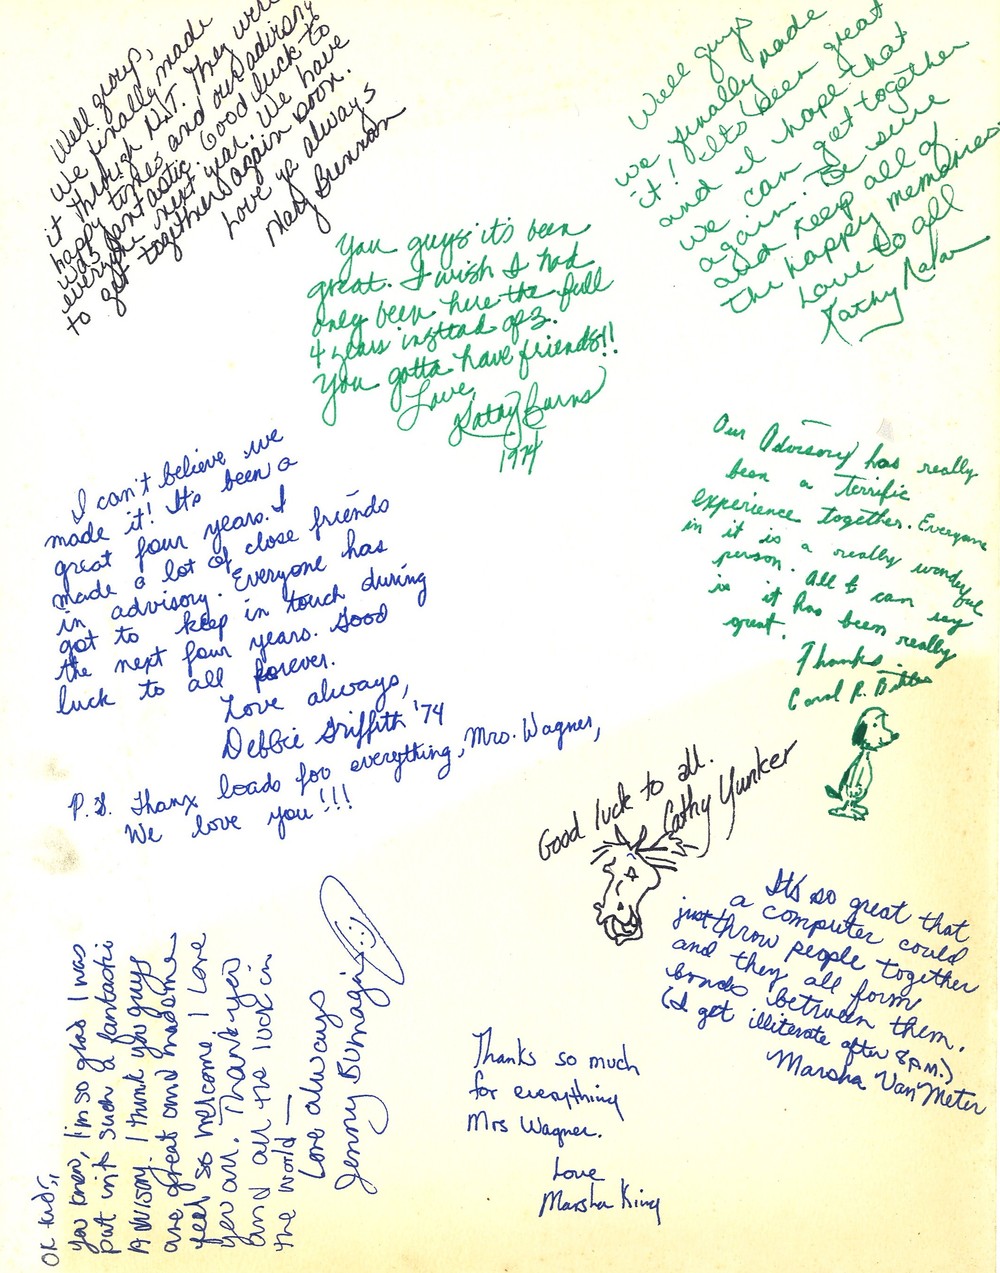 Well group,
We finally made
it through N.T. They were
happy times and our advisory
was fantastic. Good luck to
everyone next year. We have
to get together again soon.
Love ya always
Mary Brennan
Well guys
we finally made
it! It's been great
and I hope that
we can get together
again. Be sure
and keep all of
the happy memories.
Love to all
Kathy
You guys it's been
great. I wish I had
only been here the full
4 years insttad of 3.
You gotta have friends!!
Love,
Kathy Burns
1974
I can't believe we
made it! It's been a
great four years. I
made a lot of close friends
in advisory. Everyone has
got to keep in touch during
the next four years. Good
luck to all forever.
Love always,
Debbie Griffith '74
P.S. Thanx loads for everything, Mrs. Wagner,
We love you!!!
Our Advisory has really
been a terrific
experience together. Everyone
in it is a really wonderful
person. All I can say
is it has been really
great.
Thanks
Carol R.
Good luck to all.
Cathy Yunker
It's so great that
a computer could
just throw people together
and they all form
bonds between them.
(I get illiterate after 8 P.M.)
Marsha Van Meter
OK kids,
you know, I'm so glad I was
put into such a fantastic
Advisory. I think you guys
are great and made me
feel so welcome. I Love
you all. Thank you
and all the luck in
the world —
Love always
Jenny Bumagin
Thanks so much
for everything
Mrs Wagner.
Love
Marsha King